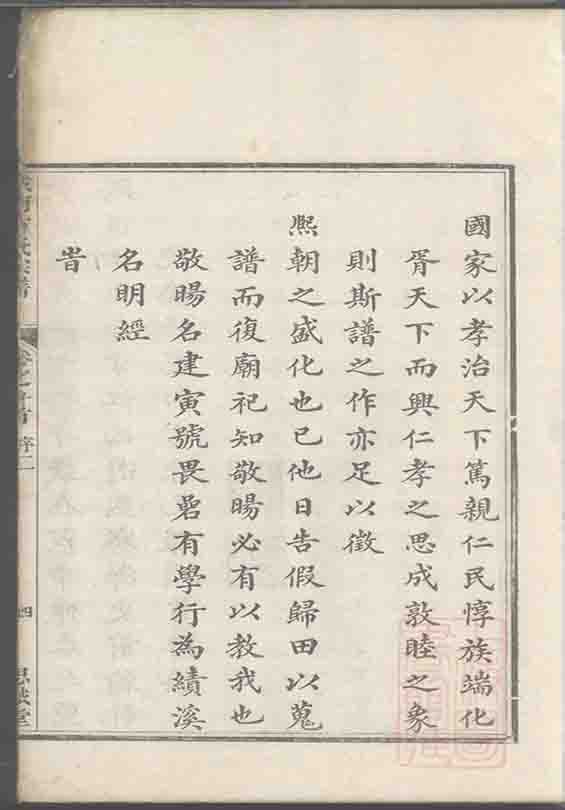 國家以孝治天下篤親仁民惇族端化
胥天下而興仁孝之思成敦睦之象
則斯譜之作亦足以徵
熙朝之盛化也已他日告假歸田以蒐
譜而復廟祀知敬暘必有以教我也
敬暘名建寅號畏碞有學行為績溪
名明經
旹
四